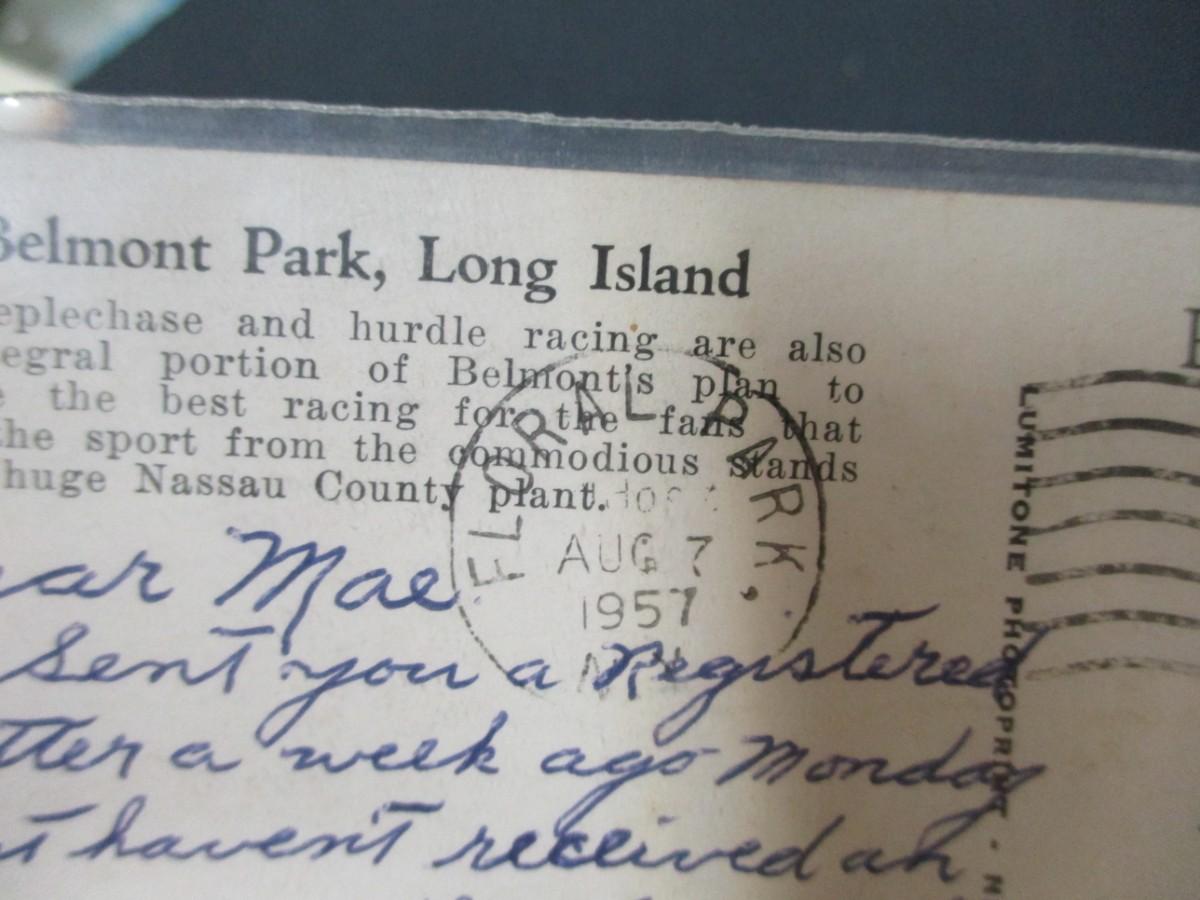 Belmont Park, Long Island
eplechase and hurdle racing are also
egral portion of Belmont's plan to
e the best racing for the fans that
he sport from the commodious stands
huge Nassau County plant.
FLORAL PARK,
AUG 7
1957
N.Y.
LUMITONE PHOTOPRINT - N
ear Mae
Sent you a Registered
tter a week ago Monday
t haven't received an